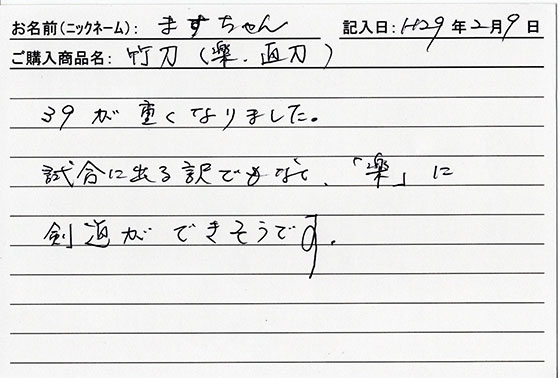 お名前(ニックネーム): ますちゃん 記入日: H29年2月9日
ご購入商品名: 竹刀(楽.直刀)
39が重くなりました。
試合に出る訳でもなく、「楽」に
剣道ができそうです.